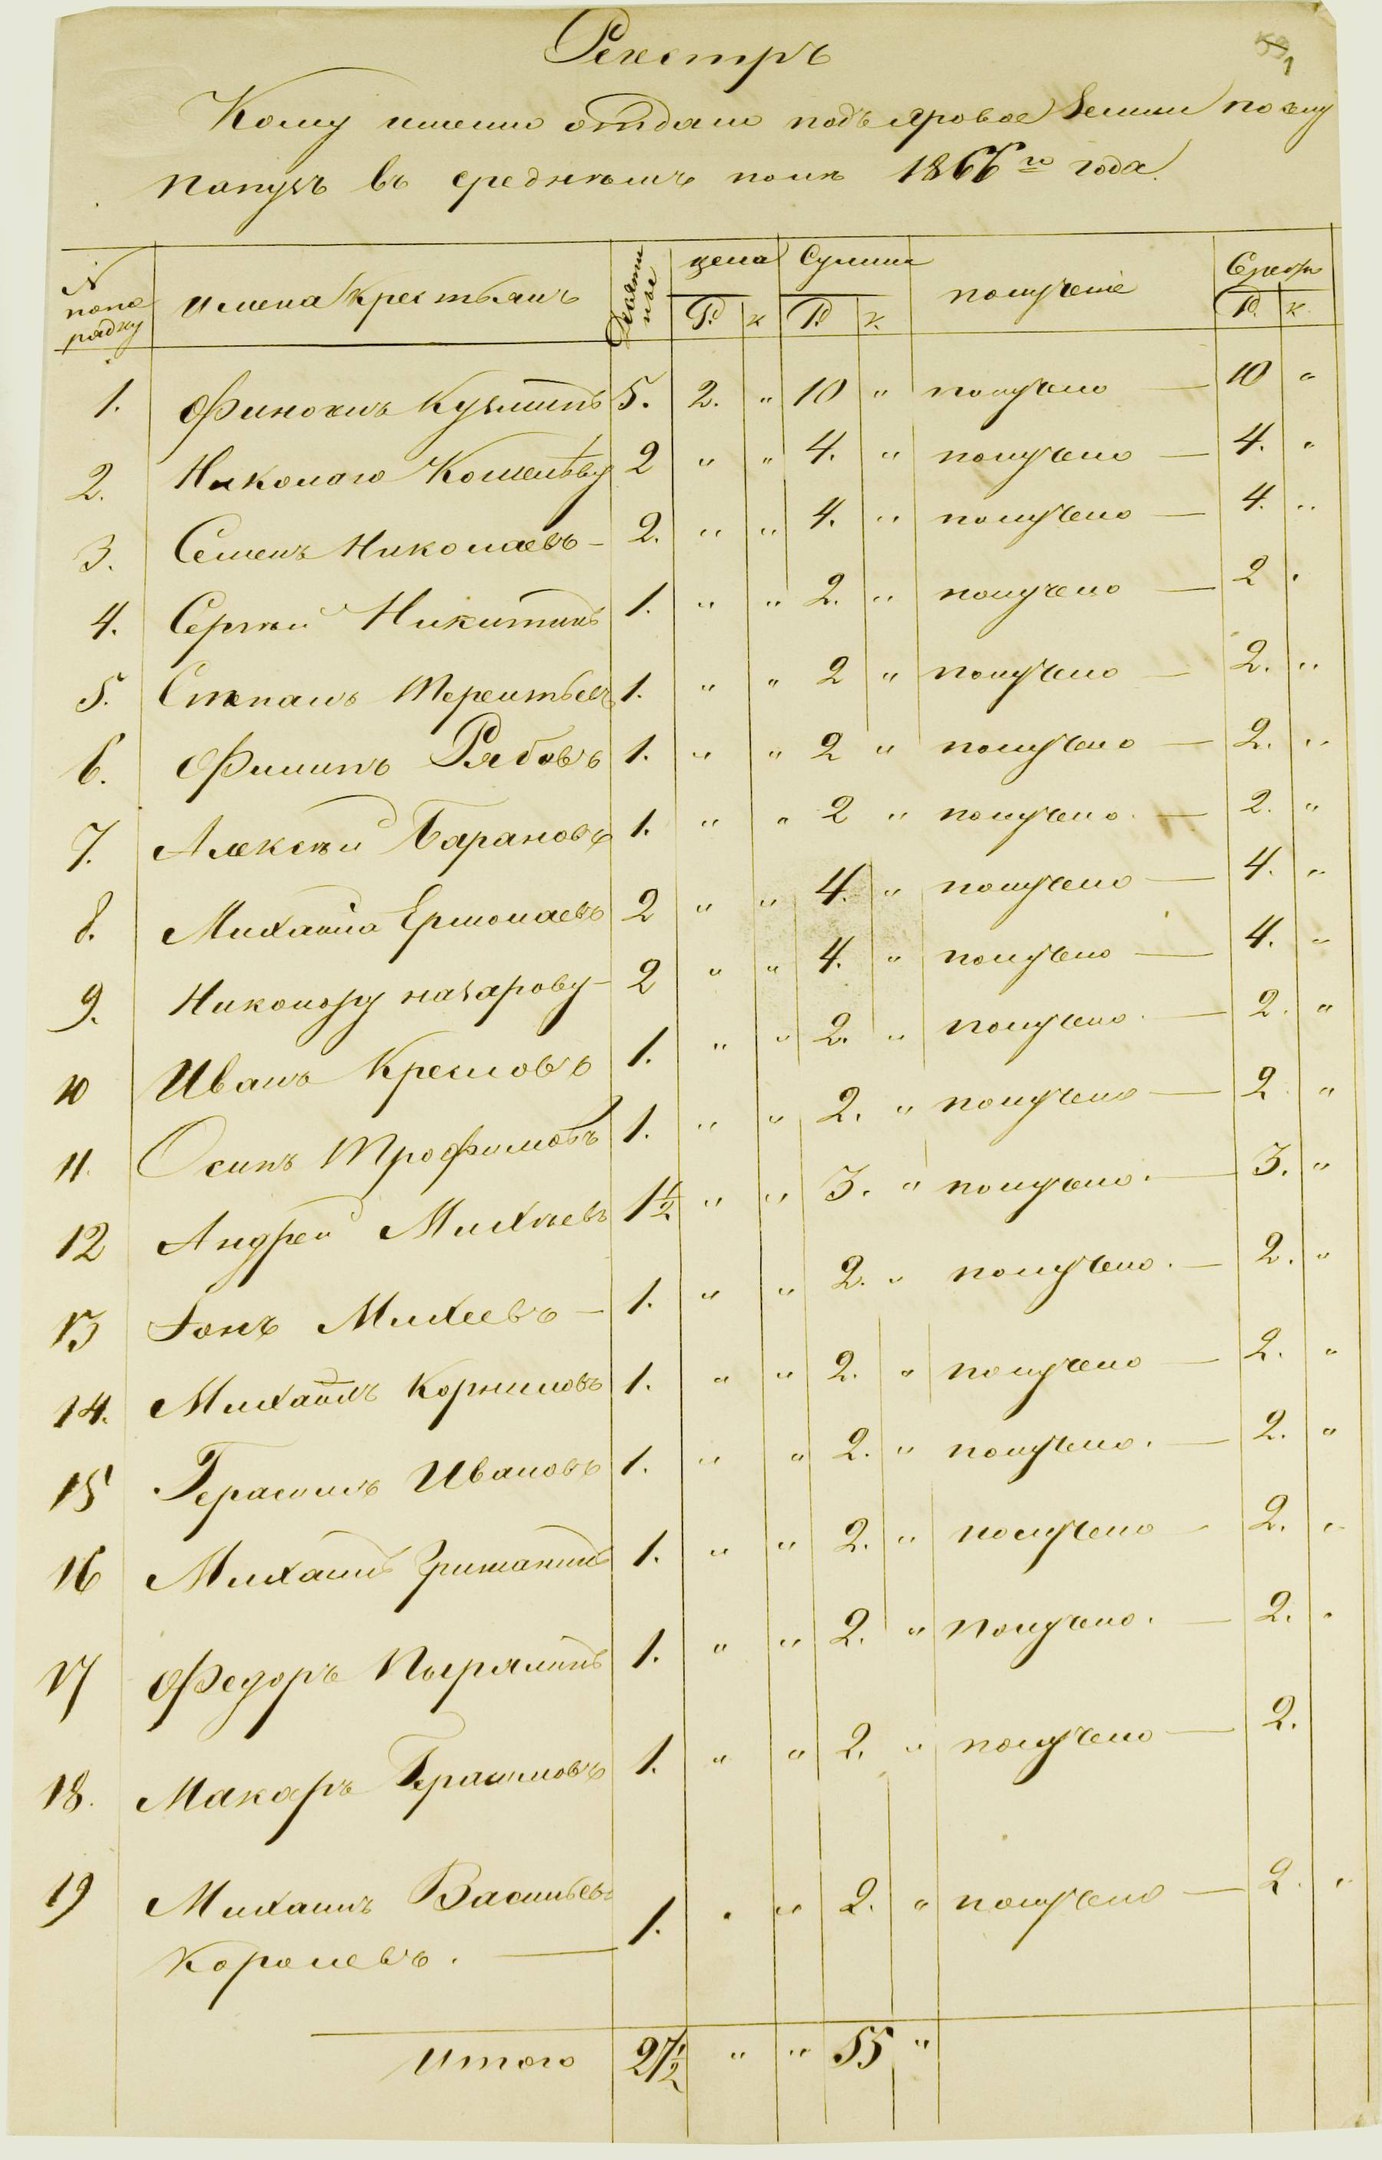 Реестръ
59 1
Кому именно отдано подъ яровое Земли по
въ среднемъ поле 1866го года.
N попо рядку имена крестьянъ Десяти ное цена Сумма получение
Р. к Р. к. Р. к.
1. Финохинъ Кузминъ 5. 2. " 10 " получено — 10 "
2. Николаю Кошелѣву 2 " " 4. " получено — 4. "
3. Семенъ Николаевъ — 2. " " 4. " получено — 4. "
4. Сергѣй Никитинъ 1. " " 2. " получено — 2 "
5. Степанъ Терентьевъ 1. " " 2 " получено — 2. "
6. Филипъ Рябовъ 1. " " 2 " получено — 2. "
7. Алексѣй Барановъ 1. " " 2 " получено. — 2. "
8. Михаила Ермолаевъ 2 " " 4. " получено — 4. "
9. назарову — 2 " " 4. " получено — 4. "
10 Иванъ Кремовъ 1. " " 2. " получено. — 2. "
11. Осипъ Трофимовъ 1. " " 2. " получено — 2 "
12 Андрей Михѣевъ 1½ " " 3. " получено. — 3. "
13 Михеевъ — 1. " " 2. " получено. — 2. "
14. Михайлъ Корниловъ 1. " " 2. " получено — 2. "
15 Герасимъ Ивановъ 1. " " 2. " получено. — 2. "
16 Михаилъ Гришанинъ 1. " " 2. " получено — 2. "
17 Федоръ 1. " " 2. " получено. — 2. "
18. Макаръ Герасимовъ 1. " " 2. " получено — 2.
19 Михаилъ Васильевъ
Королевъ. — 1. " " 2. " получено — 2. "
Итого 27½ " " 55 "